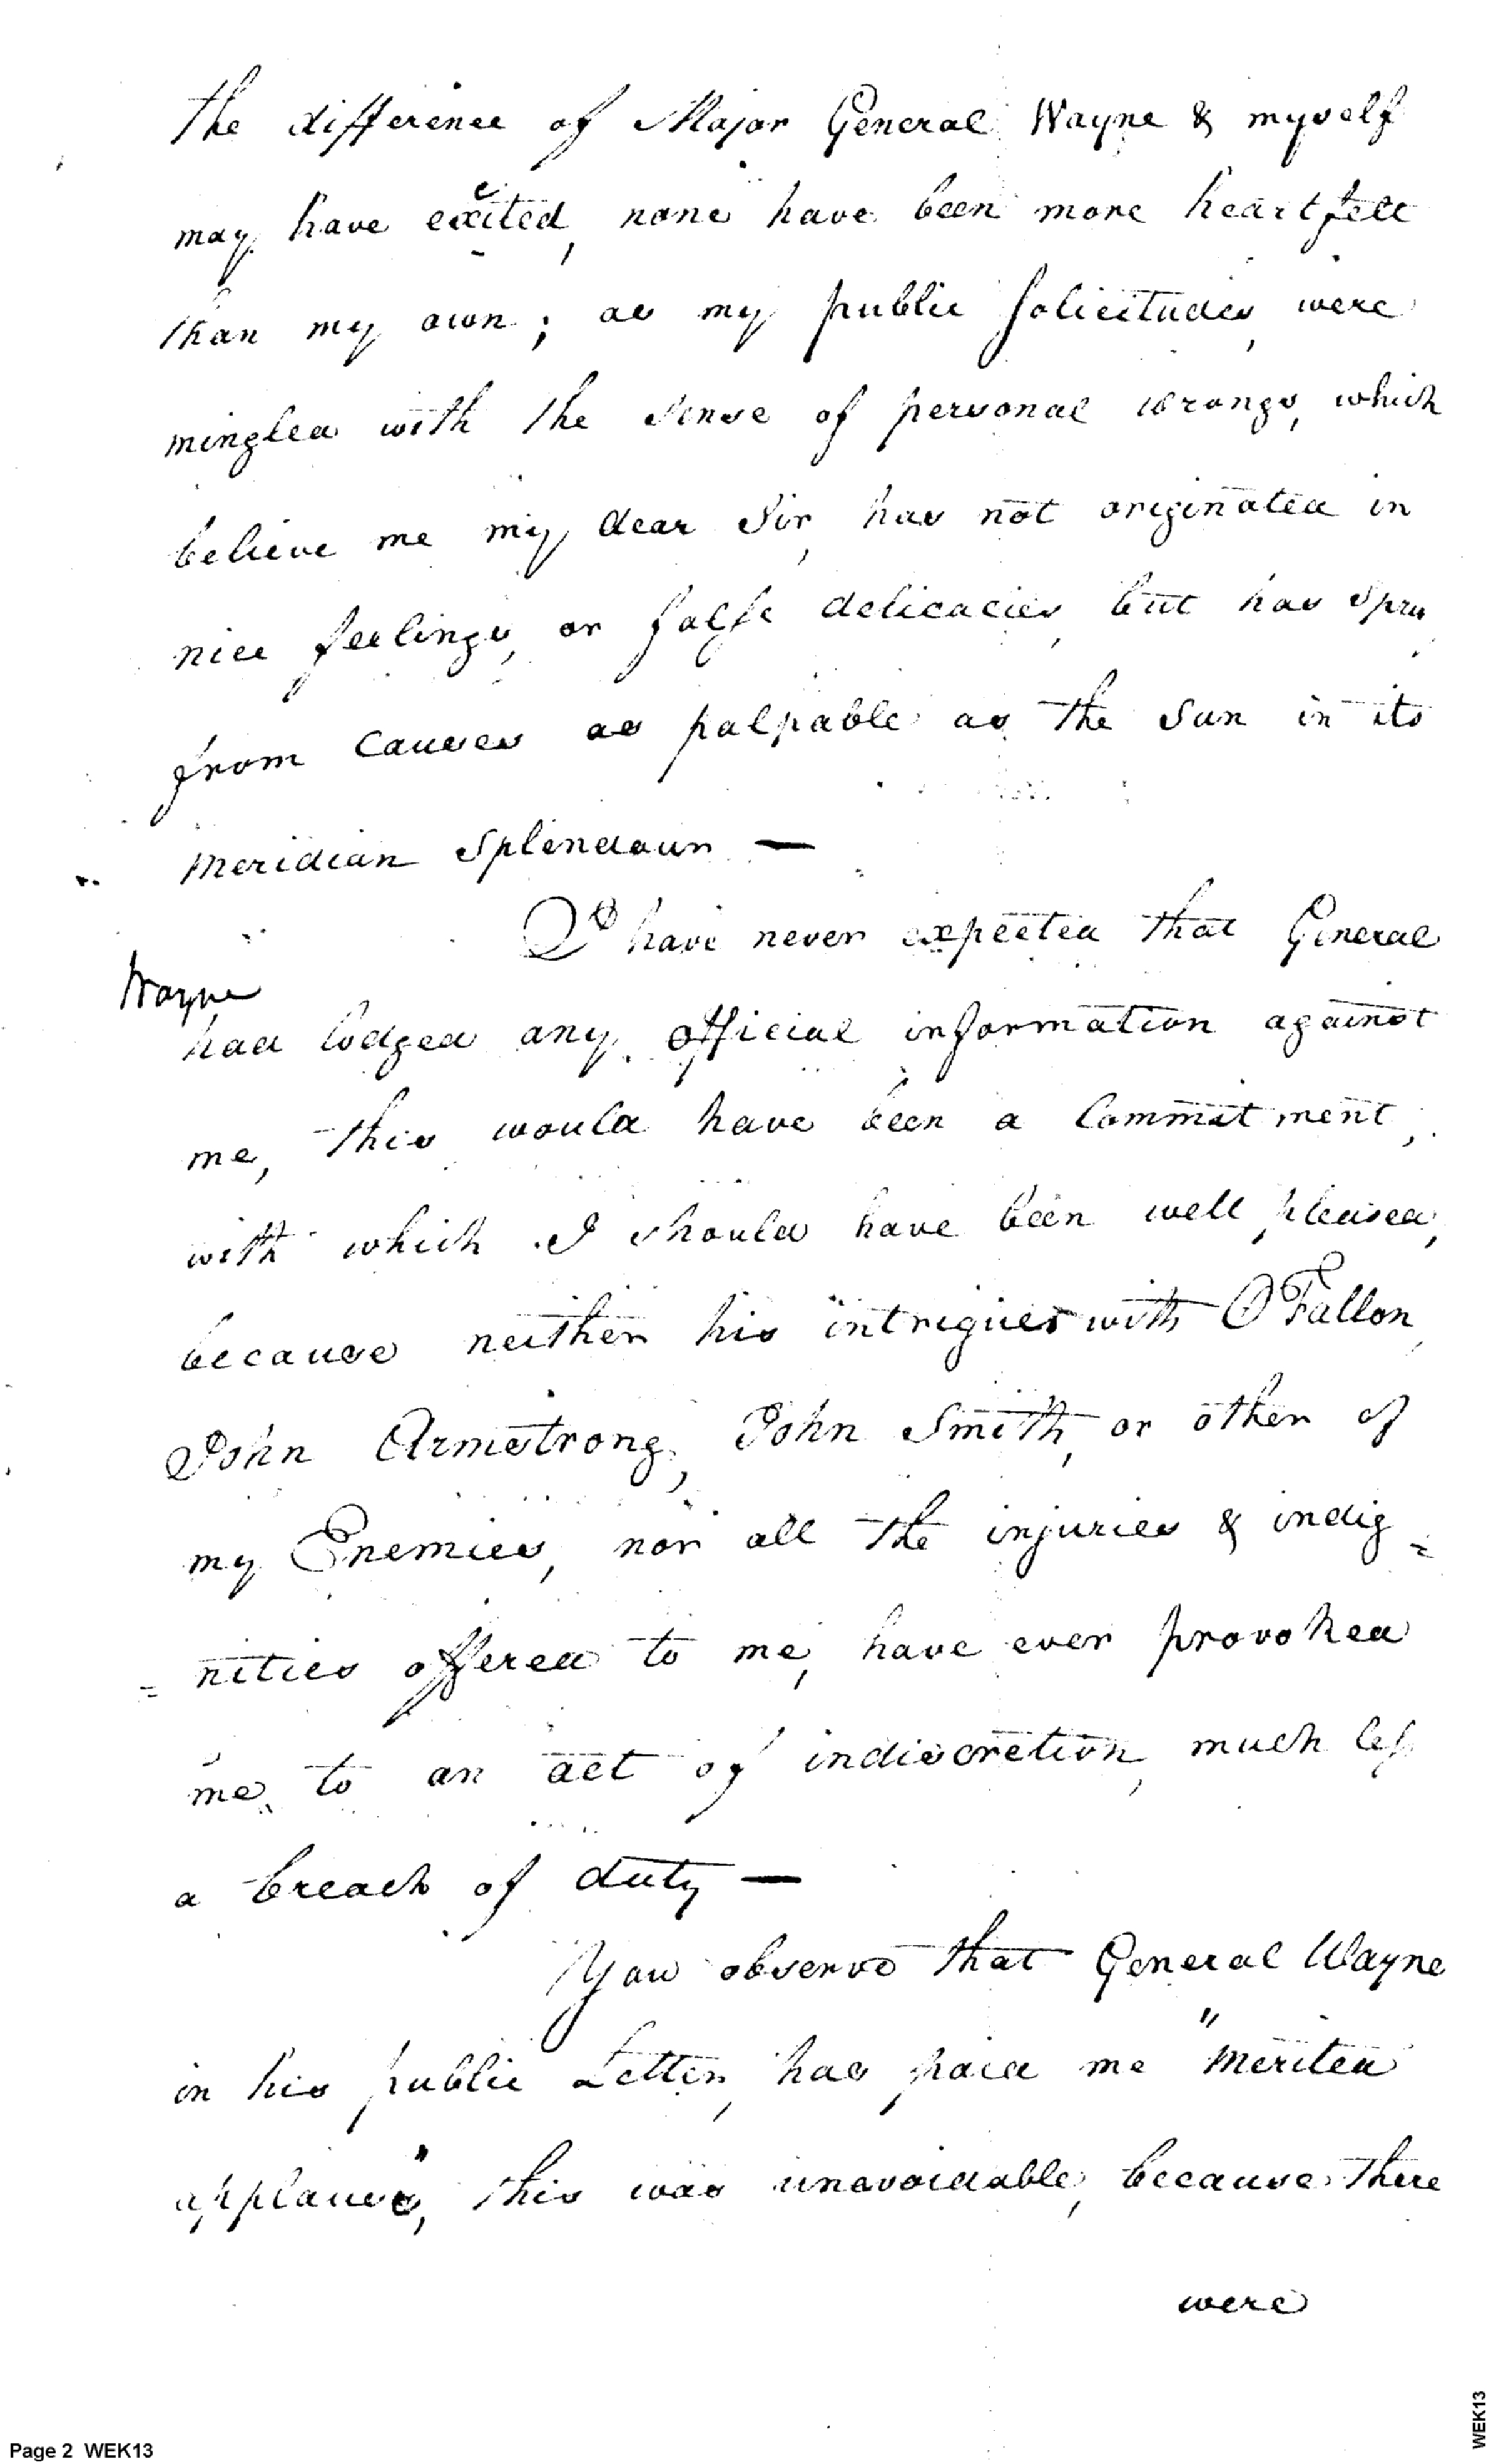 the difference of Major General Wayne & myself
may have excited, none have been more heartfelt
than my own; as my public solicitudes, were
mingled with the sense of personal wrongs, which
believe me my dear Sir, has not originated in
nice feelings, or false delicacies, but has spru
from causes as palpable as the Sun in its
Meridian Splendour —
I have never expected that General
Wayne
had lodged any official information against
me, this would have been a Commitment,
with which I should have been well pleased,
because neither his intrigues with O'Fallon
John Armstrong, John Smith, or other of
my Enemies, nor all the injuries & indig=
=nities offered to me, have ever provoked
me, to an act of indiscretion, much less
a breach of duty —
You observe that General Wayne
in his public Letter, has paid me "merited
applause", this was unavoidable, because there
were
Page 2 WEK13
WEK13